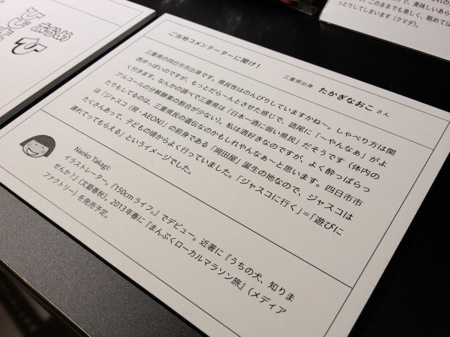 ご当地コメンテーターに聞け！
三重県出身 たかぎなおこさん
三重県の四日市市出身です。県民性はのんびりしていますかねー。しゃべり方は関
西弁っぽいのですが、もっとだらーんとさせた感じで、語尾に「〜やんなぁ」がよ
く付きます。なんかの調べで三重県は「日本一酒に弱い県民」だそうです（体内の
アルコールの分解酵素の割合が少ない）。私は酒好きなのですが、よく酔っぱらっ
たりもしてるのは、三重県民の遺伝なのかもしれんなぁ〜と思います。四日市市
は「ジャスコ（現・AEON）」の前身である「岡田屋」誕生の地なので、ジャスコは
たくさんあって、子どもの頃からよく行っていました。「ジャスコに行く」＝「遊びに
連れてってもらえる」というイメージでした。
Naoko Takagi:
イラストレーター。『150cmライフ。』でデビュー。近著に『うちの犬、知りま
せんか?』（文藝春秋）。2013年春に『まんぷくローカルマラソン旅』（メディア
ファクトリー）を発売予定。